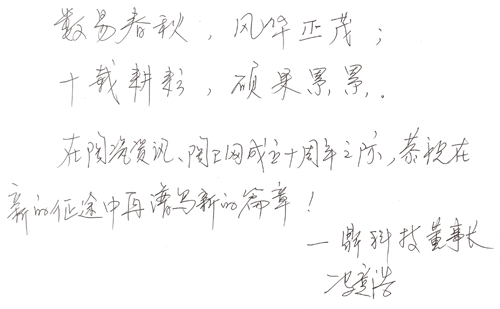 数易春秋，风华正茂；
十载耕耘，硕果累累．
在陶瓷资讯、陶卫网成立十周年之际，恭祝在
新的征途中再谱写新的篇章！
一鼎科技董事长
冯竞浩